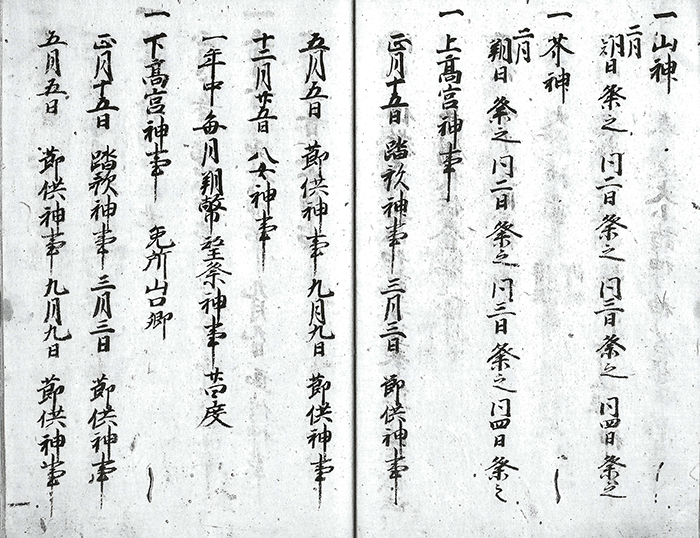 一山神
二月朔日 祭之 同二日祭之 同三日祭之 同四日祭之
一芥神
二月朔日 祭之 同二日祭之 同三日祭之 同四日祭之
一上高宮神事
正月十五日 踏歌神事 三月三日 節供神事
五月五日 節供神事 九月九日 節供神事
十二月廿五日 八女神事
一年中毎月朔幣望祭神事廿四度
一下高宮神事 免所山口郷
正月十五日 踏歌神事 三月三日 節供神事
五月五日 節供神事 九月九日 節供神事